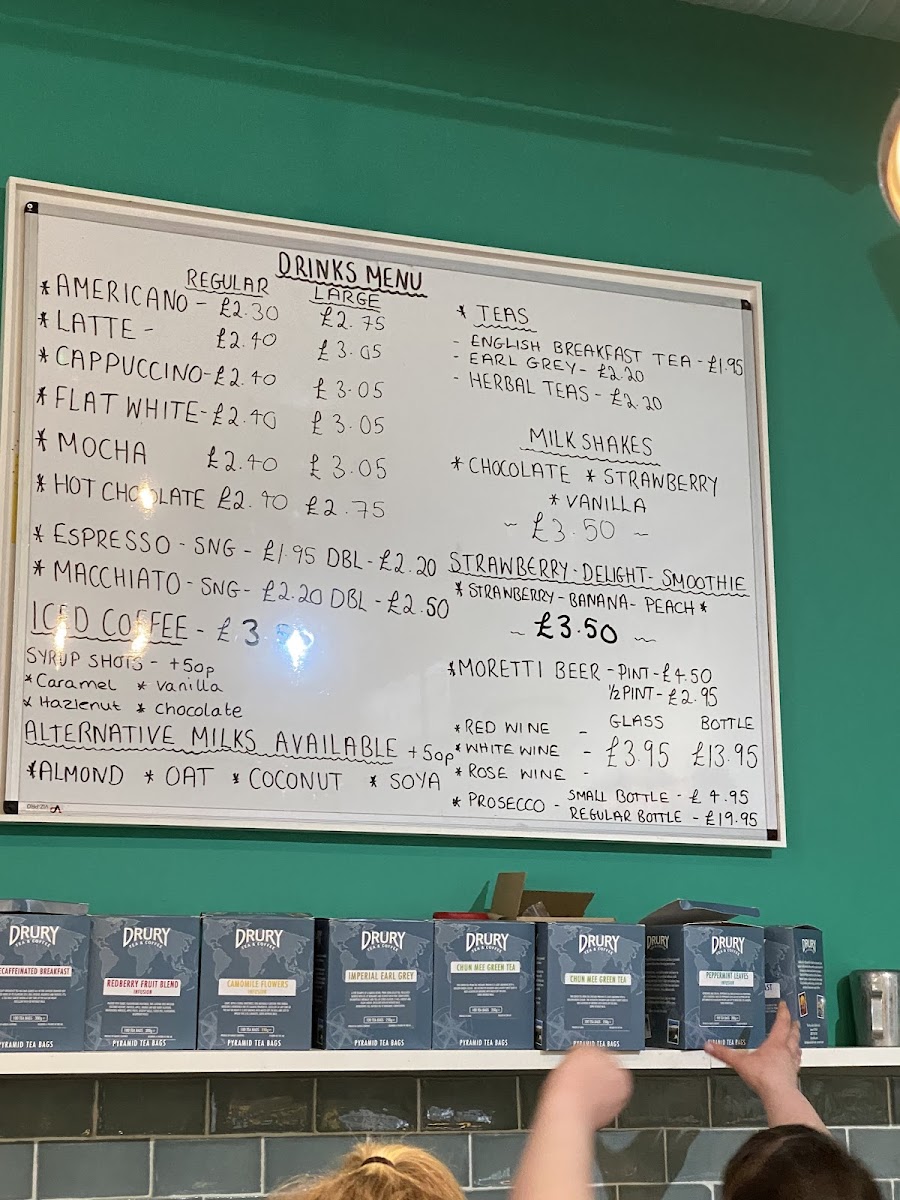 DRINKS MENU
REGULAR LARGE
* AMERICANO - £2.30 £2.75
* LATTE - £2.40 £3.05
* CAPPUCCINO - £2.40 £3.05
* FLAT WHITE - £2.40 £3.05
* MOCHA £2.40 £3.05
* HOT CHOCOLATE £2.40 £2.75
* ESPRESSO - SNG - £1.95 DBL - £2.20
* MACCHIATO - SNG - £2.20 DBL - £2.50
ICED COFFEE - £3
SYRUP SHOTS - +50p
* Caramel * vanilla
* Hazlenut * chocolate
ALTERNATIVE MILKS AVAILABLE +50p
* ALMOND * OAT * COCONUT * SOYA
* TEAS
- ENGLISH BREAKFAST TEA - £1.95
- EARL GREY - £2.20
- HERBAL TEAS - £2.20
MILKSHAKES
* CHOCOLATE * STRAWBERRY
* VANILLA
~ £3.50 ~
STRAWBERRY-DELIGHT-SMOOTHIE
* STRAWBERRY - BANANA - PEACH *
~ £3.50 ~
* MORETTI BEER - PINT - £4.50
1/2 PINT - £2.95
GLASS BOTTLE
* RED WINE -
* WHITE WINE - £3.95 £13.95
* ROSE WINE -
* PROSECCO - SMALL BOTTLE - £4.95
REGULAR BOTTLE - £19.95
DRURY
TEA & COFFEE
ECAFFEINATED BREAKFAST
PYRAMID TEA BAGS
DRURY
TEA & COFFEE
REDBERRY FRUIT BLEND
INFUSION
PYRAMID TEA BAGS
DRURY
TEA & COFFEE
CAMOMILE FLOWERS
INFUSION
PYRAMID TEA BAGS
DRURY
TEA & COFFEE
IMPERIAL EARL GREY
PYRAMID TEA BAGS
DRURY
TEA & COFFEE
CHUN MEE GREEN TEA
PYRAMID TEA BAGS
DRURY
TEA & COFFEE
CHUN MEE GREEN TEA
PYRAMID TEA BAGS
DRURY
DRURY
TEA & COFFEE
PEPPERMINT LEAVES
INFUSION
PYRAMID TEA BAGS
DRURY